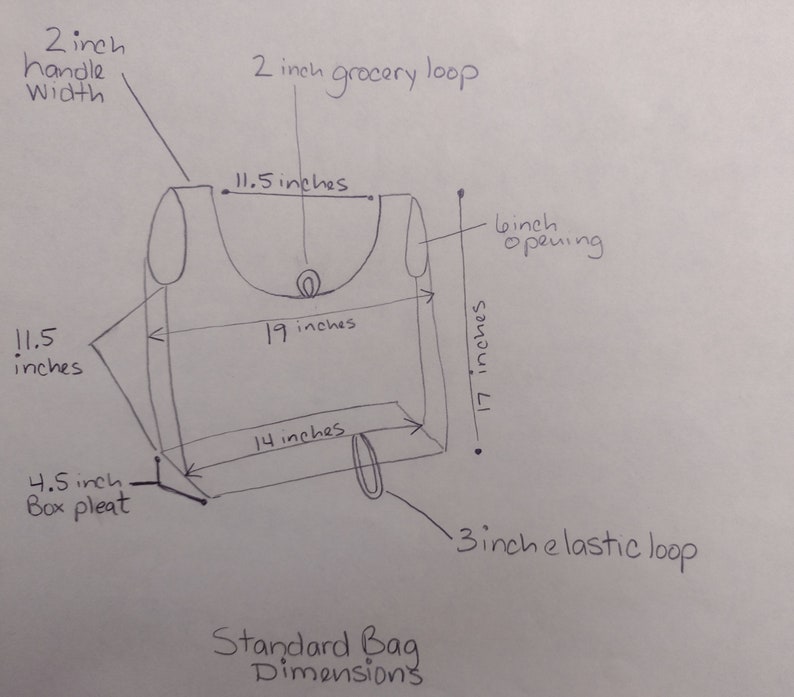 2 inch
handle
width
2 inch grocery loop
11.5 inches
6 inch
opening
19 inches
11.5
inches
17 inches
14 inches
4.5 inch
Box pleat
3 inch elastic loop
Standard Bag
Dimensions